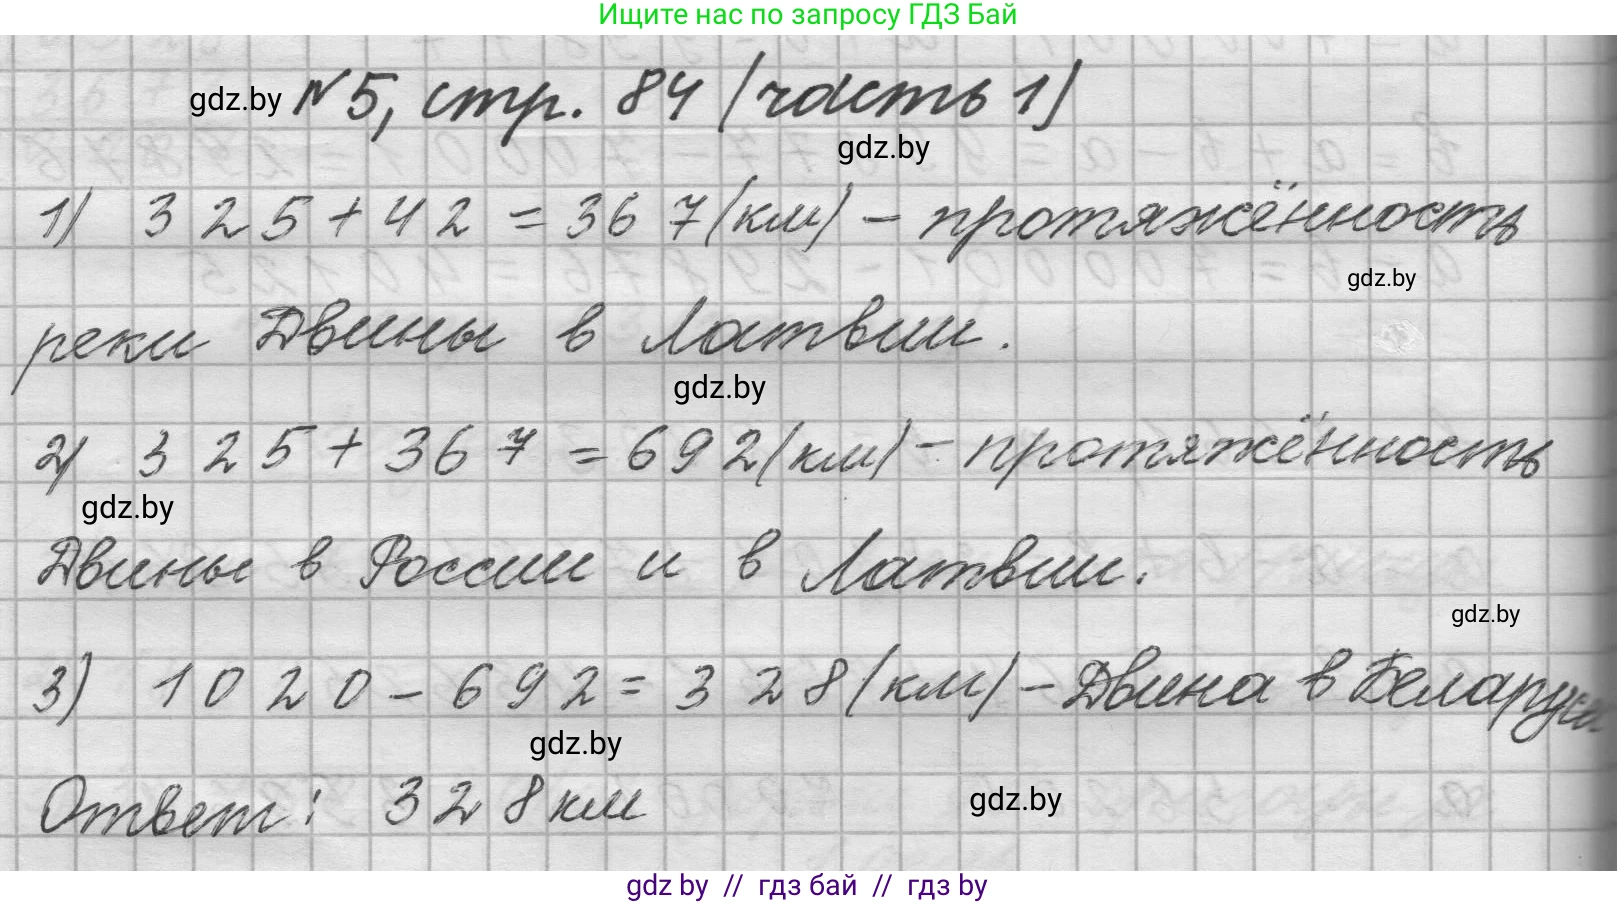 Ищите нас по запросу ГДЗ Бай
gdz.by №5, стр. 84 (часть 1)
gdz.by
1) 325+42=367(км) – протяжённость
gdz.by
реки Двины в Латвии.
gdz.by
2) 325+367=692(км) – протяжённость
gdz.by
Двины в России и в Латвии.
gdz.by
3) 1020–692=328(км) – Двина в Беларуси
gdz.by
Ответ: 328км
gdz.by
gdz by // гдз бай // гдз by